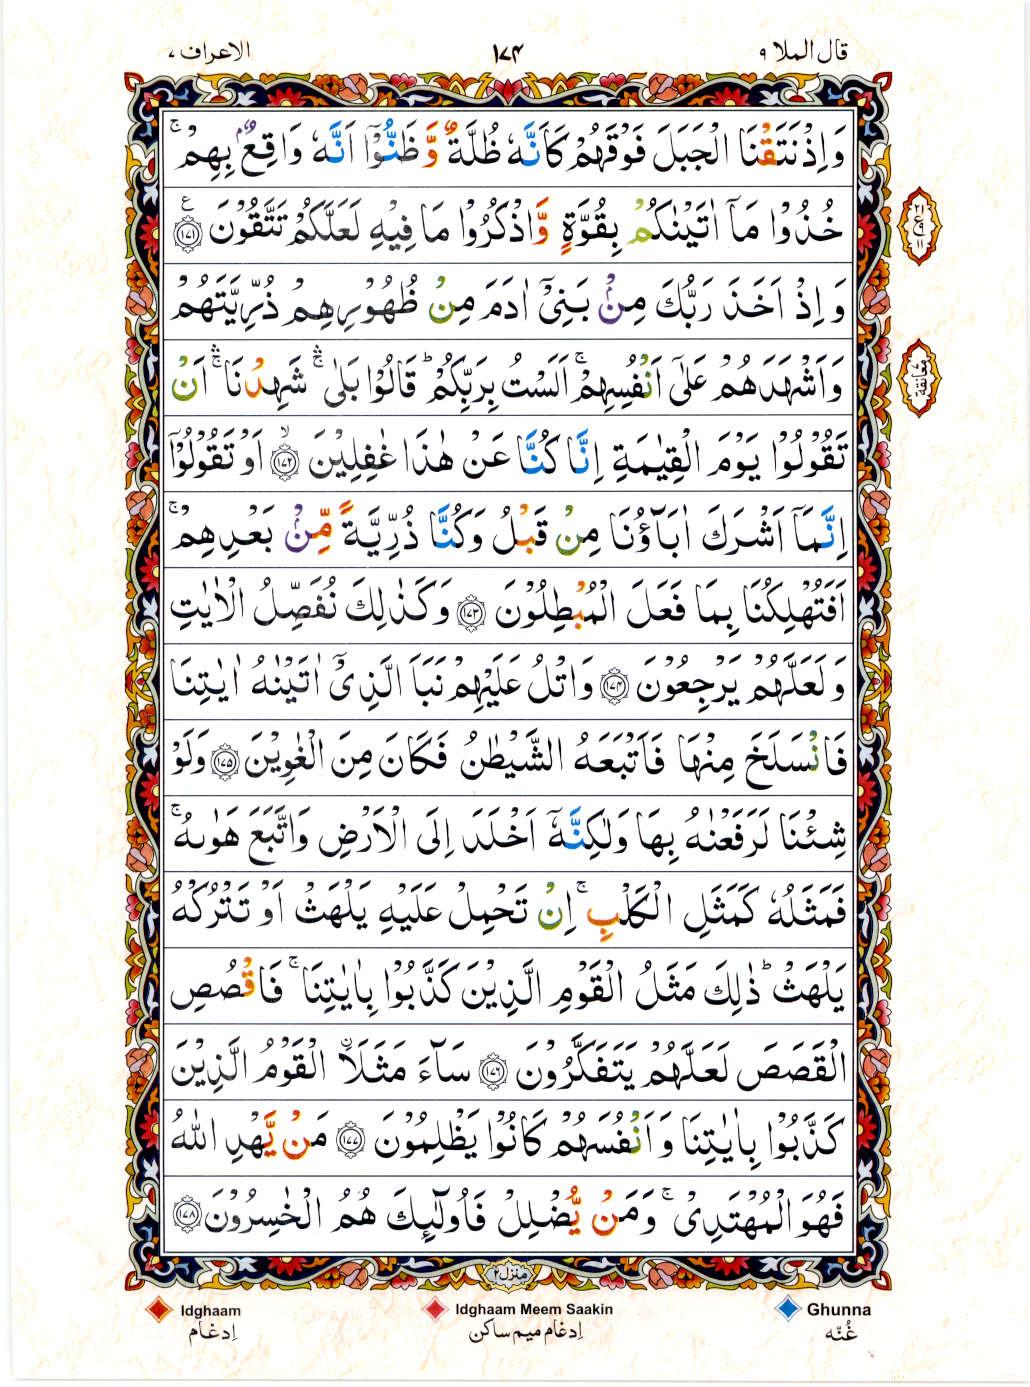 قال الملا ٩
١٧٤
الاعراف ٧
وَاِذْ نَتَقْنَا الْجَبَلَ فَوْقَهُمْ كَاَنَّهٗ ظُلَّةٌ وَّظَنُّوْۤا اَنَّهٗ وَاقِعٌۢ بِهِمْ ۚ
خُذُوْا مَاۤ اٰتَيْنٰكُمْ بِقُوَّةٍ وَّاذْكُرُوْا مَا فِيْهِ لَعَلَّكُمْ تَتَّقُوْنَ ﴿۱۷۱﴾ ع
وَاِذْ اَخَذَ رَبُّكَ مِنْۢ بَنِيْۤ اٰدَمَ مِنْ ظُهُوْرِهِمْ ذُرِّيَّتَهُمْ
وَاَشْهَدَهُمْ عَلٰۤى اَنْفُسِهِمْ ۚ اَلَسْتُ بِرَبِّكُمْ ؕ قَالُوْا بَلٰى ۛۚ شَهِدْنَا ۛۚ اَنْ
تَقُوْلُوْا يَوْمَ الْقِيٰمَةِ اِنَّا كُنَّا عَنْ هٰذَا غٰفِلِيْنَ ﴿۱۷۲﴾ ۙ اَوْ تَقُوْلُوْۤا
اِنَّمَاۤ اَشْرَكَ اٰبَآؤُنَا مِنْ قَبْلُ وَكُنَّا ذُرِّيَّةً مِّنْۢ بَعْدِهِمْ ۚ
اَفَتُهْلِكُنَا بِمَا فَعَلَ الْمُبْطِلُوْنَ ﴿۱۷۳﴾ وَكَذٰلِكَ نُفَصِّلُ الْاٰيٰتِ
وَلَعَلَّهُمْ يَرْجِعُوْنَ ﴿۱۷۴﴾ وَاتْلُ عَلَيْهِمْ نَبَاَ الَّذِيْۤ اٰتَيْنٰهُ اٰيٰتِنَا
فَانْسَلَخَ مِنْهَا فَاَتْبَعَهُ الشَّيْطٰنُ فَكَانَ مِنَ الْغٰوِيْنَ ﴿۱۷۵﴾ وَلَوْ
شِئْنَا لَرَفَعْنٰهُ بِهَا وَلٰكِنَّهٗۤ اَخْلَدَ اِلَى الْاَرْضِ وَاتَّبَعَ هَوٰىهُ ۚ
فَمَثَلُهٗ كَمَثَلِ الْكَلْبِ ۚ اِنْ تَحْمِلْ عَلَيْهِ يَلْهَثْ اَوْ تَتْرُكْهُ
يَلْهَثْ ؕ ذٰلِكَ مَثَلُ الْقَوْمِ الَّذِيْنَ كَذَّبُوْا بِاٰيٰتِنَا ۚ فَاقْصُصِ
الْقَصَصَ لَعَلَّهُمْ يَتَفَكَّرُوْنَ ﴿۱۷۶﴾ سَآءَ مَثَلَا۟ اۨلْقَوْمُ الَّذِيْنَ
كَذَّبُوْا بِاٰيٰتِنَا وَاَنْفُسَهُمْ كَانُوْا يَظْلِمُوْنَ ﴿۱۷۷﴾ مَنْ يَّهْدِ اللّٰهُ
فَهُوَ الْمُهْتَدِيْ ۚ وَمَنْ يُّضْلِلْ فَاُولٰٓئِكَ هُمُ الْخٰسِرُوْنَ ﴿۱۷۸﴾
معانقة
منزل ٢
Idghaam
ادغام
Idghaam Meem Saakin
ادغام میم ساکن
Ghunna
غُنّه